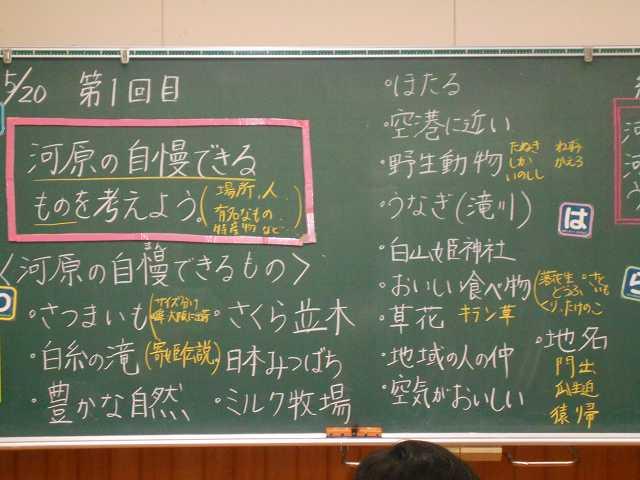 5/20 第1回目
河原の自慢できる
ものを考えよう。
(場所、人、
有名なもの、
特産物 など…)
〈河原の自慢できるもの〉
・さつまいも
(サイズ分け
・さくら並木
・白糸の滝(寄姫伝説。)
・日本みつばち
・豊かな自然
・ミルク牧場
・ほたる
・空港に近い
・野生動物
たぬき ねずみ
しか かえる
いのしし
・うなぎ(滝川)
・白山姫神社
・おいしい食べ物
(落花生・
とうふ、いも
くり、たけのこ
・草花 キラン草
・地域の人の仲
・空気がおいしい
・地名
門出
瓜生迫
猿帰
は